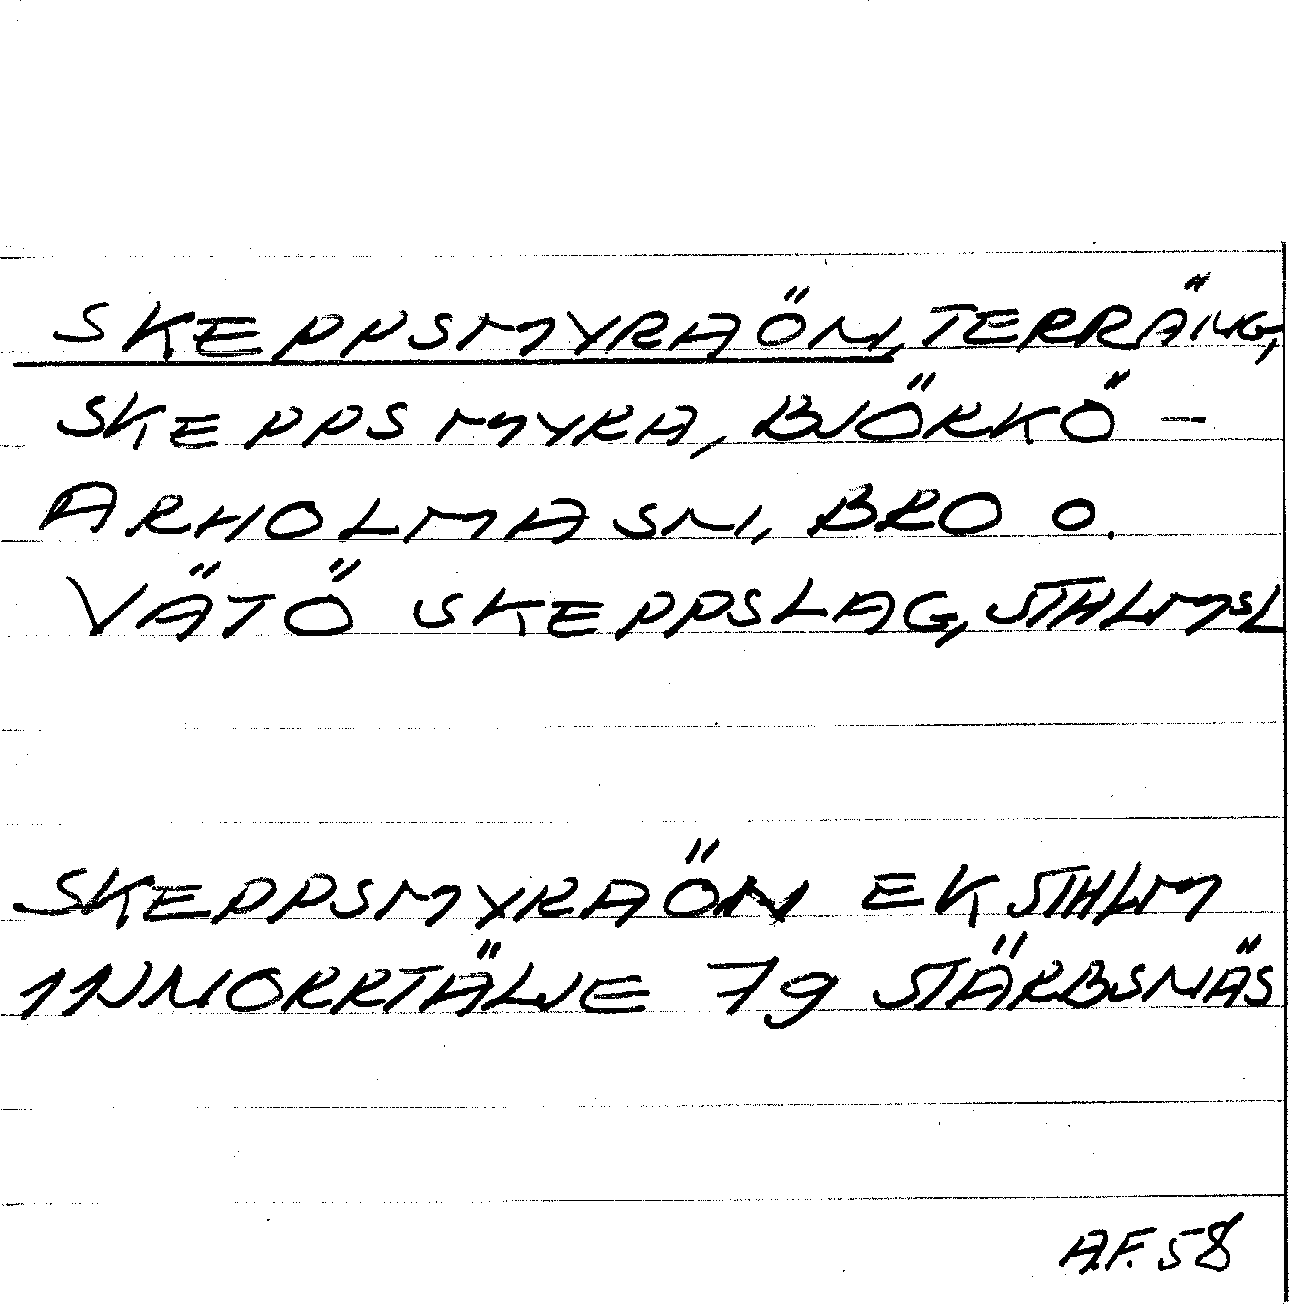 SKEPPSMYRAÖN, TERRÄNG,
SKEPPSMYRA, BJÖRKÖ –
ARHOLMA SN, BRO O.
VÄTÖ SKEPPSLAG, STHLMSL
SKEPPSMYRAÖN EK STHLM
11N NORRTÄLJE 79 STÄRBSNÄS
A.F. 58